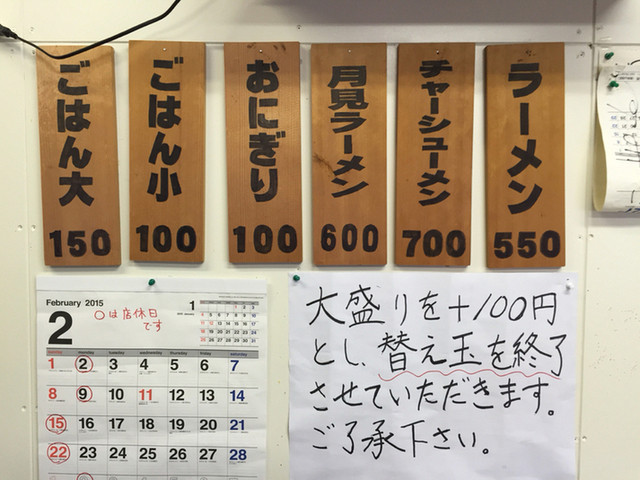 ラーメン
550
チャーシューメン
700
月見ラーメン
600
おにぎり
100
ごはん小
100
ごはん大
150
February 2015
2
○は店休日
です
1
sunday monday tuesday wednesday thursday friday saturday
1 2 3 4 5 6 7
8 9 10 11 12 13 14
15 16 17 18 19 20 21
22 23 24 25 26 27 28
大盛りを+100円
とし、替え玉を終了
させていただきます。
ご了承下さい。